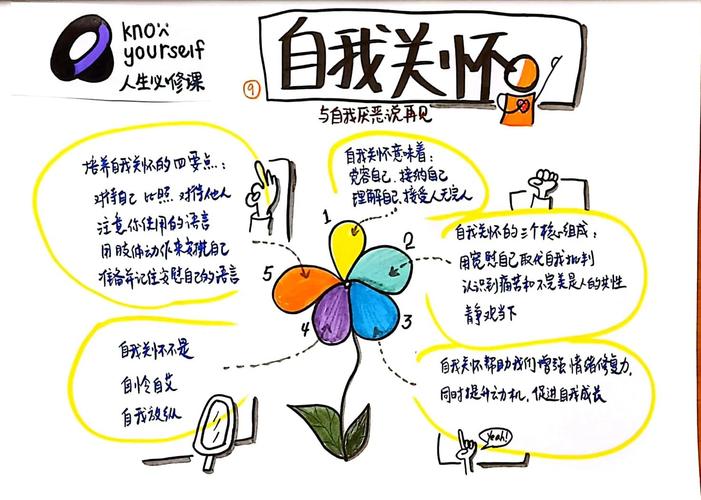 know
yourself
人生必修课
9
自我关怀
与自我厌恶说再见
自我关怀意味着:
宽容自己、接纳自己
理解自己、接受人无完人
1
2
3
4
5
自我关怀的三个核心组成:
用宽慰自己取代自我批判
认识到痛苦和不完美是人的共性
静观当下
自我关怀帮助我们增强情绪修复力,
同时提升动机,促进自我成长
Yeah!
自我关怀不是
自怜自艾
自我放纵
培养自我关怀的四要点:
对待自己 比照 对待他人
注意你使用的语言
用肢体动作来安抚自己
准备并记住安慰自己的语言